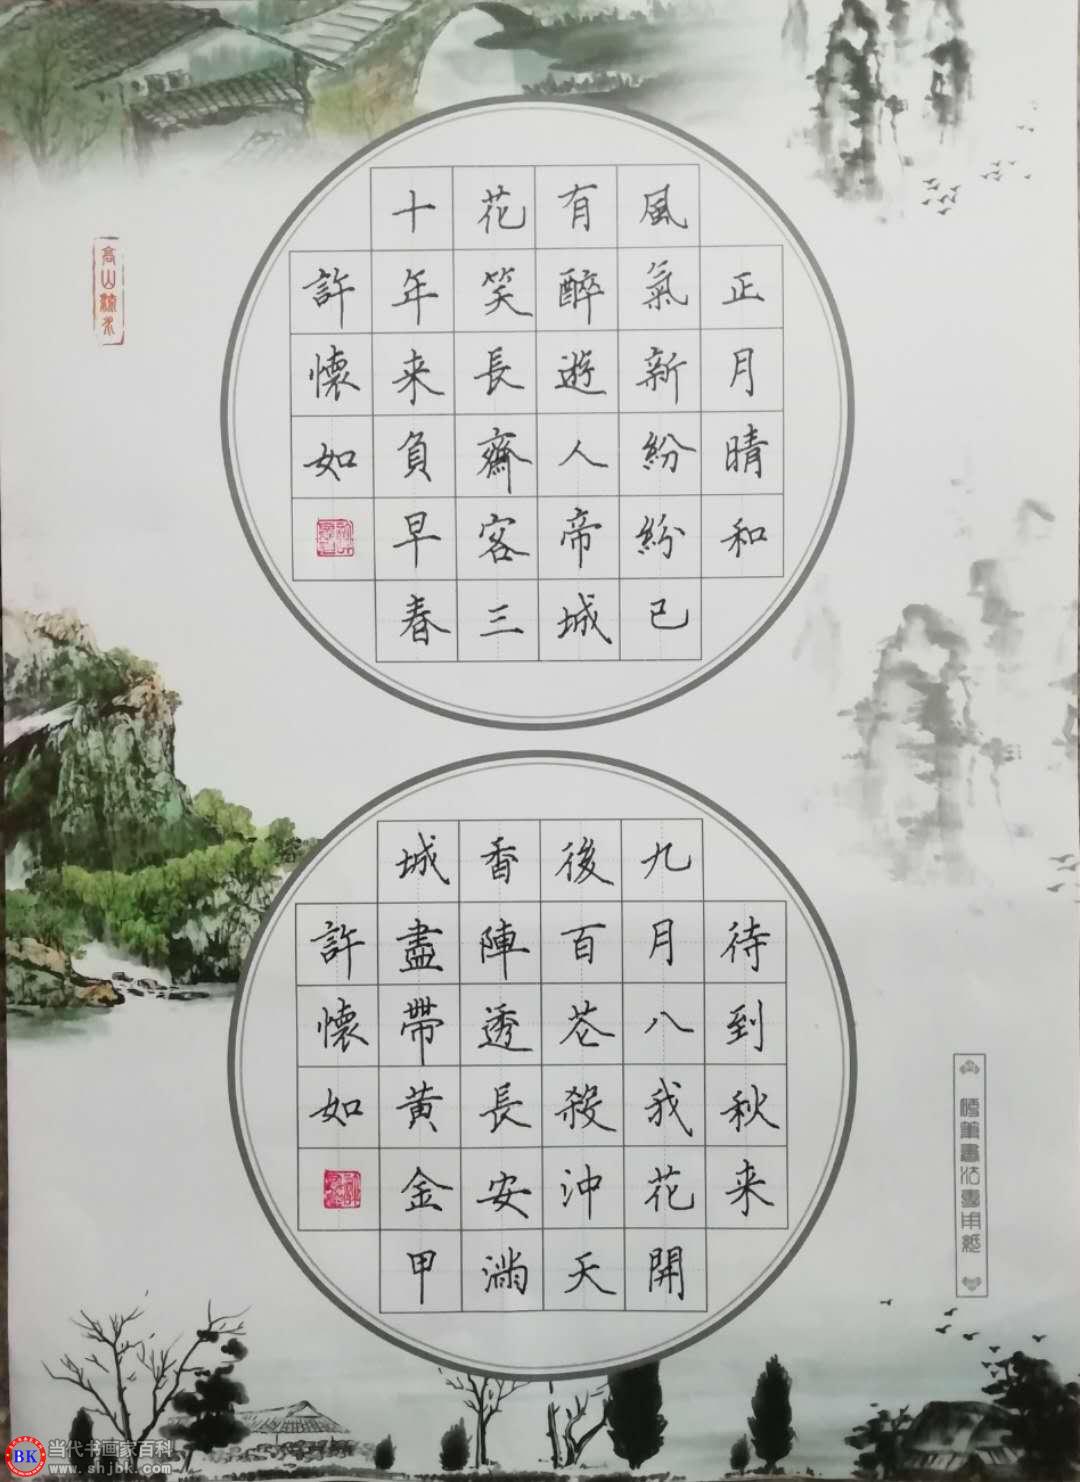 正月晴和
風氣新紛紛已
有醉遊人帝城
花笑長齋客三
十年来負早春
許懷如
高山流水
待到秋来
九月八我花開
後百花殺沖天
香陣透長安滿
城盡帶黄金甲
許懷如
硬筆書法專用紙
BK
当代书画家百科
www.shjbk.com